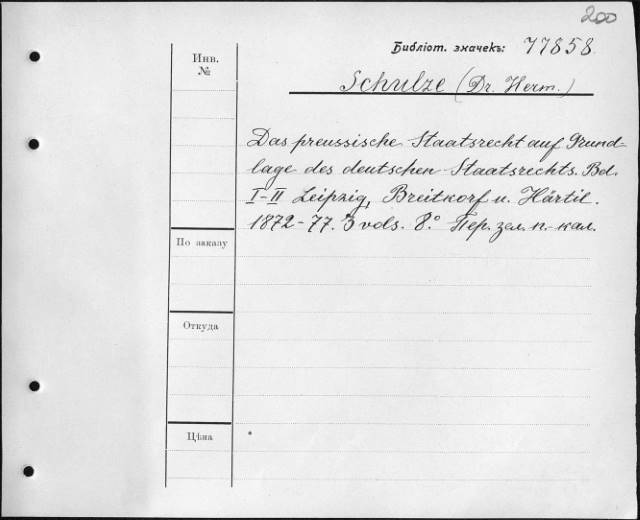 200
Библіот. значекъ: 77858
Инв.
№
Schulze (Dr. Herm.)
Das preussische Staatsrecht auf Grund-
lage des deutschen Staatsrechts. Bd.
I-II Leipzig, Breitkorf u. Härtil.
1872-77. 3 vols. 8.° Пер. зел. п.-кал.
По заказу
Откуда
Цѣна